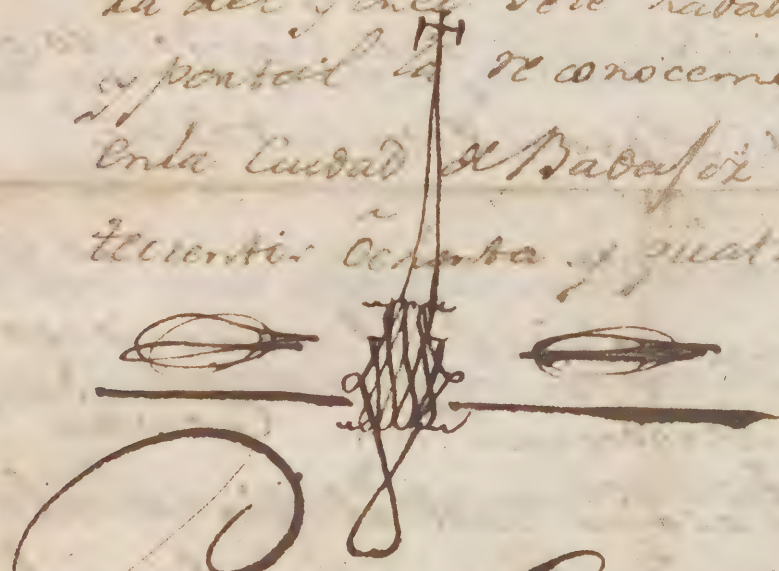 y portal lo reconocem
enla Ciudad de Badajoz
tecientos ochenta y quat